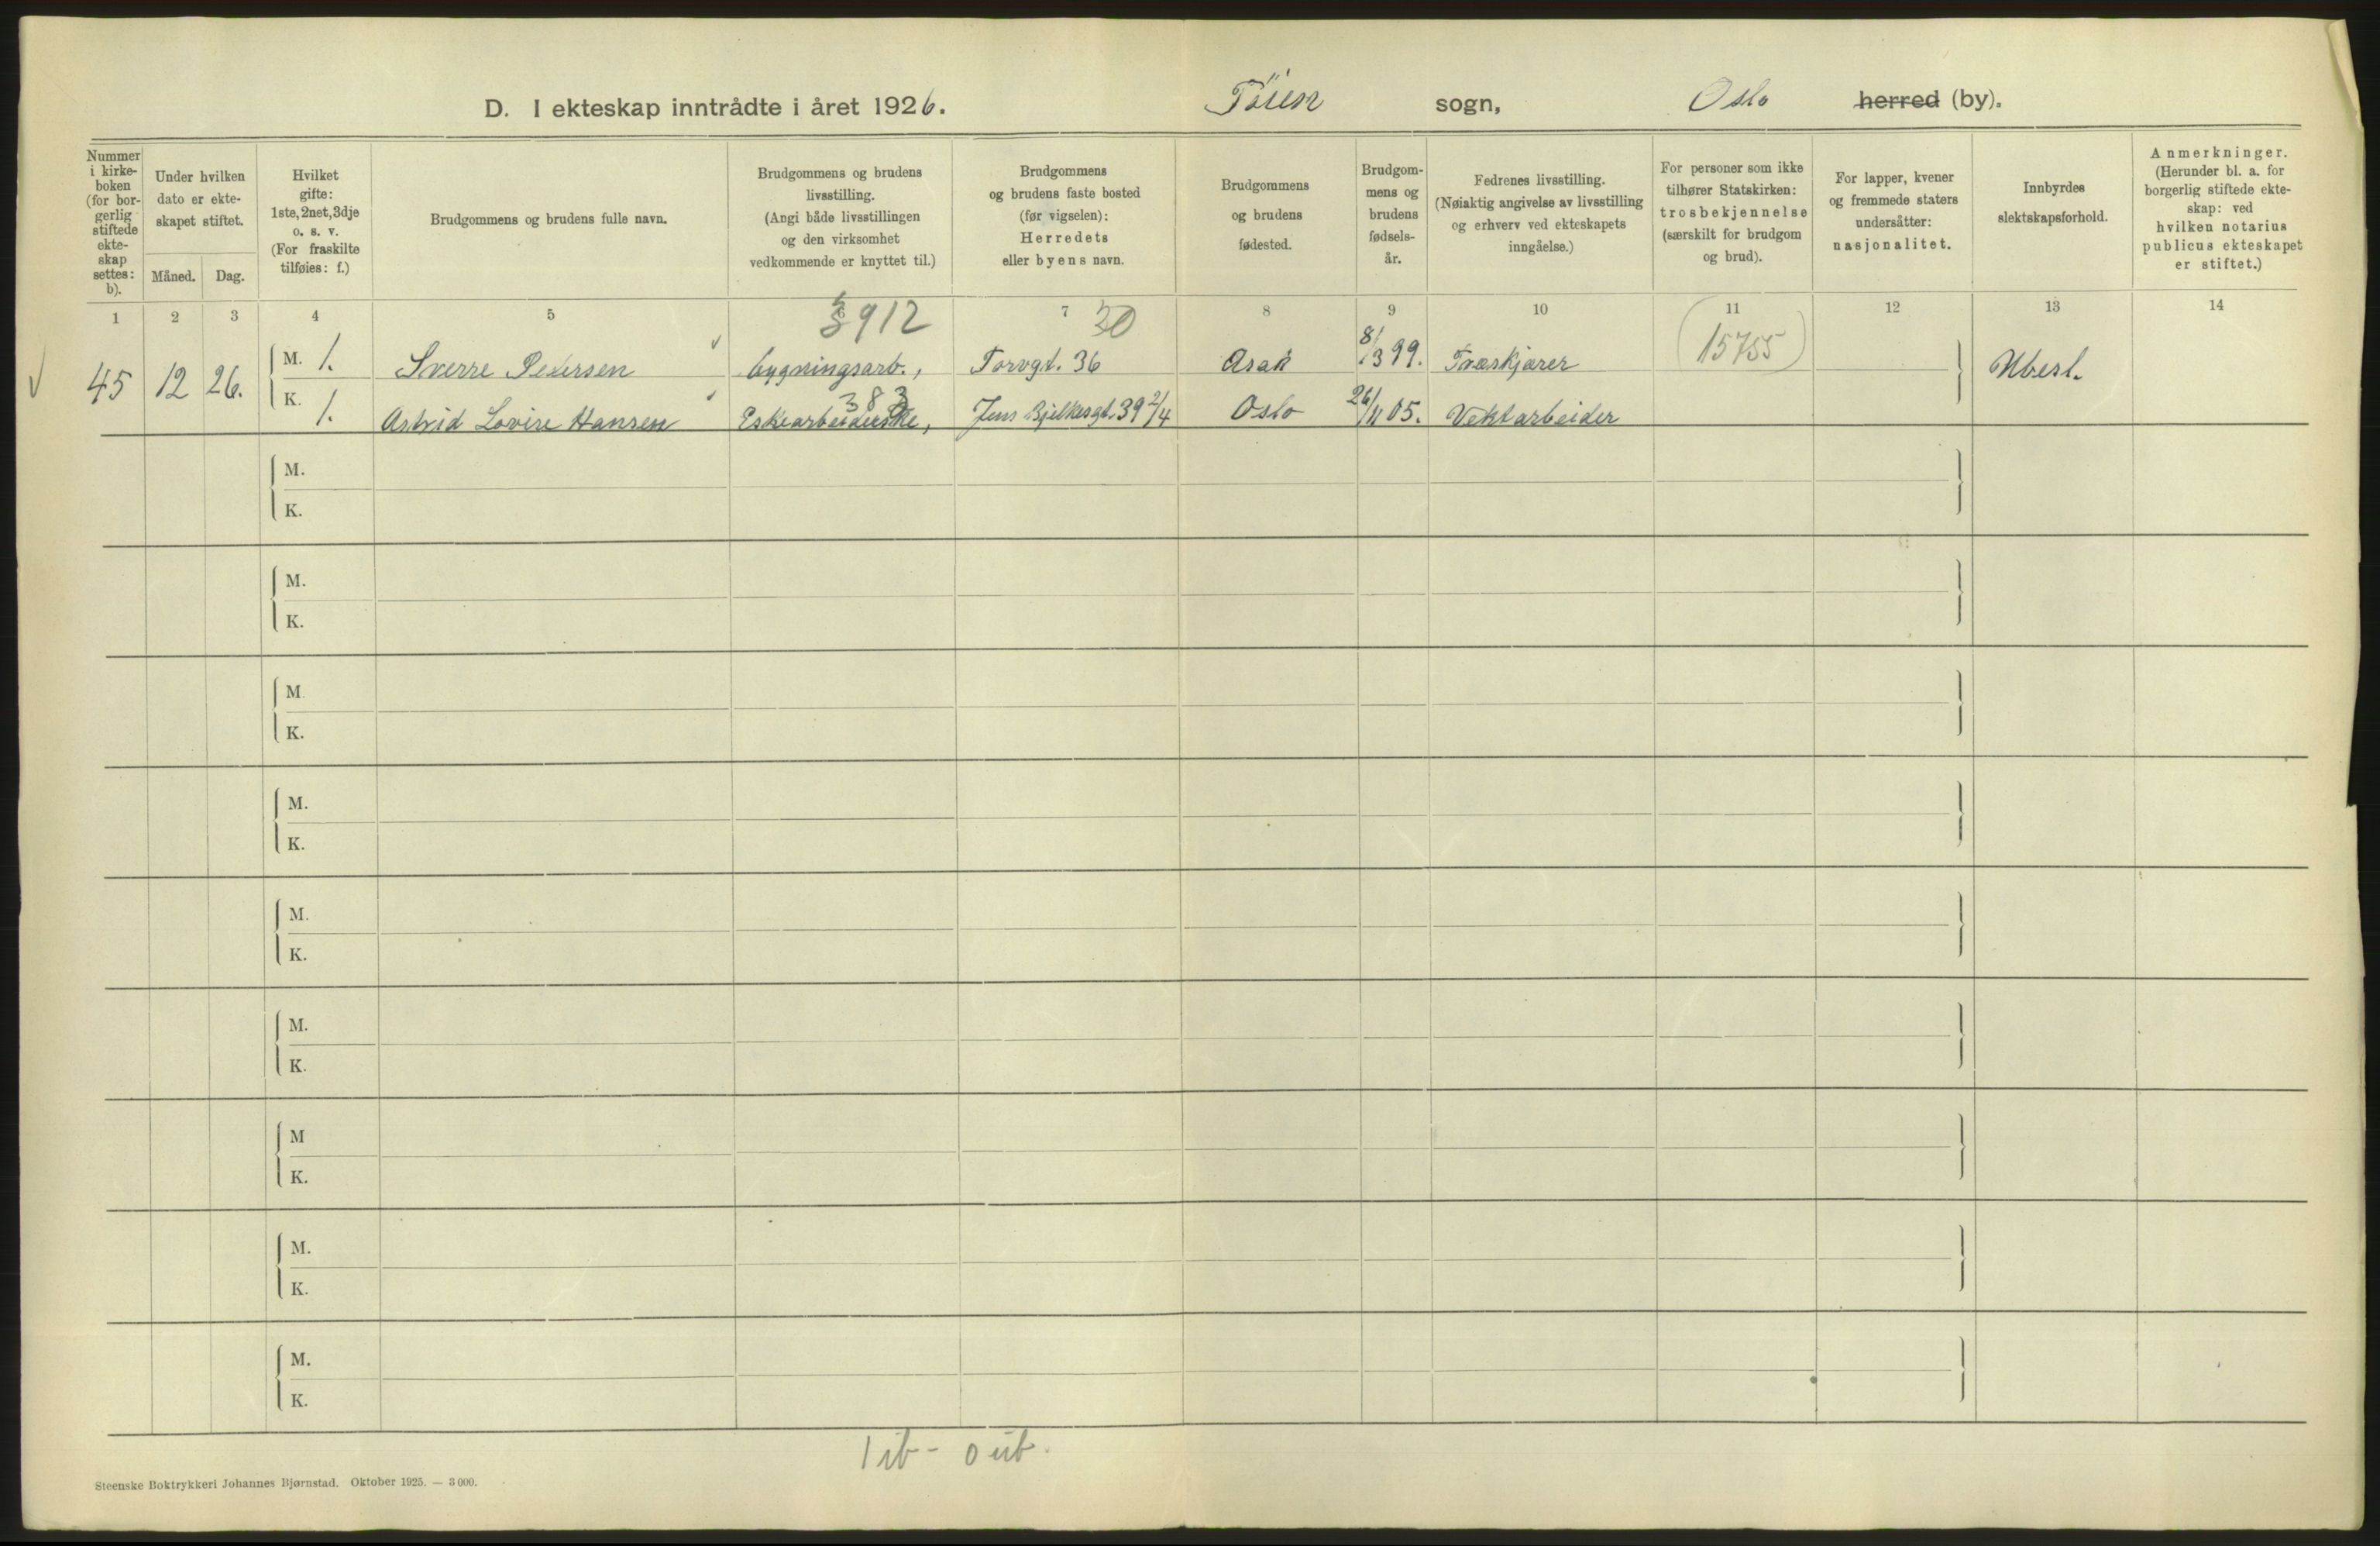 D. I ekteskap inntrådte i året 1926. Töien sogn, Oslo herred (by).
Nummer i kirke-boken (for bor-gerlig stiftede ekte-skap settes: b).
Under hvilken dato er ekte-skapet stiftet.
Måned. Dag.
Hvilket gifte: 1ste, 2net, 3dje o. s. v. (For fraskilte tilføies: f.)
Brudgommens og brudens fulle navn.
Brudgommens og brudens livsstilling. (Angi både livsstillingen og den virksomhet vedkommende er knyttet til.)
Brudgommens og brudens faste bosted (før vigselen): Herredets eller byens navn.
Brudgommens og brudens fødested.
Brudgom-mens og brudens fødsels-år.
Fedrenes livsstilling. (Nøiaktig angivelse av livsstilling og erhverv ved ekteskapets inngåelse.)
For personer som ikke tilhører Statskirken: trosbekjennelse (særskilt for brudgom og brud).
For lapper, kvener og fremmede staters undersåtter: nasjonalitet.
Innbyrdes slektskapsforhold.
Anmerkninger. (Herunder bl. a. for borgerlig stiftede ekte-skap: ved hvilken notarius publicus ekteskapet er stiftet.)
1 2 3 4 5 912 7 30 8 9 10 11 12 13 14
45 12 26. M. 1. Sverre Pedersen bygningsarb., Torvgt. 36 Asak 8/3 99. Træskjærer (15755) Ubesl.
383
K. 1. Astrid Lovise Hansen Eskearbeiderske, Jens Bjelkesgt. 39 2/4 Oslo 26/11 05. Vektarbeider
M.
K.
M.
K.
M.
K.
M.
K.
M.
K.
M.
K.
M
K.
M.
K.
M.
K.
1 ib - 0 ub.
Steenske Boktrykkeri Johannes Bjørnstad. Oktober 1925. — 3 000.